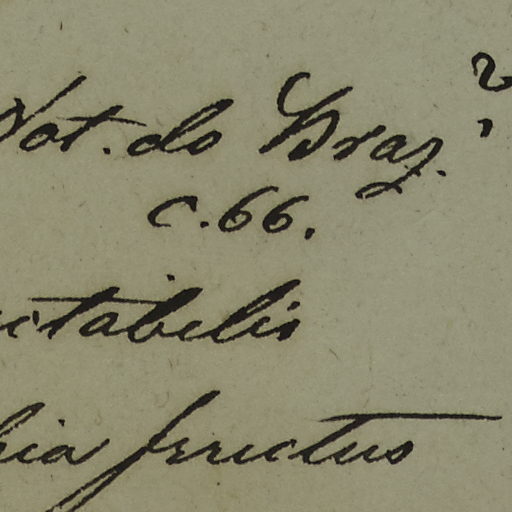 Not. do Braz. ?
c. 66.
itabilis
hia fructus